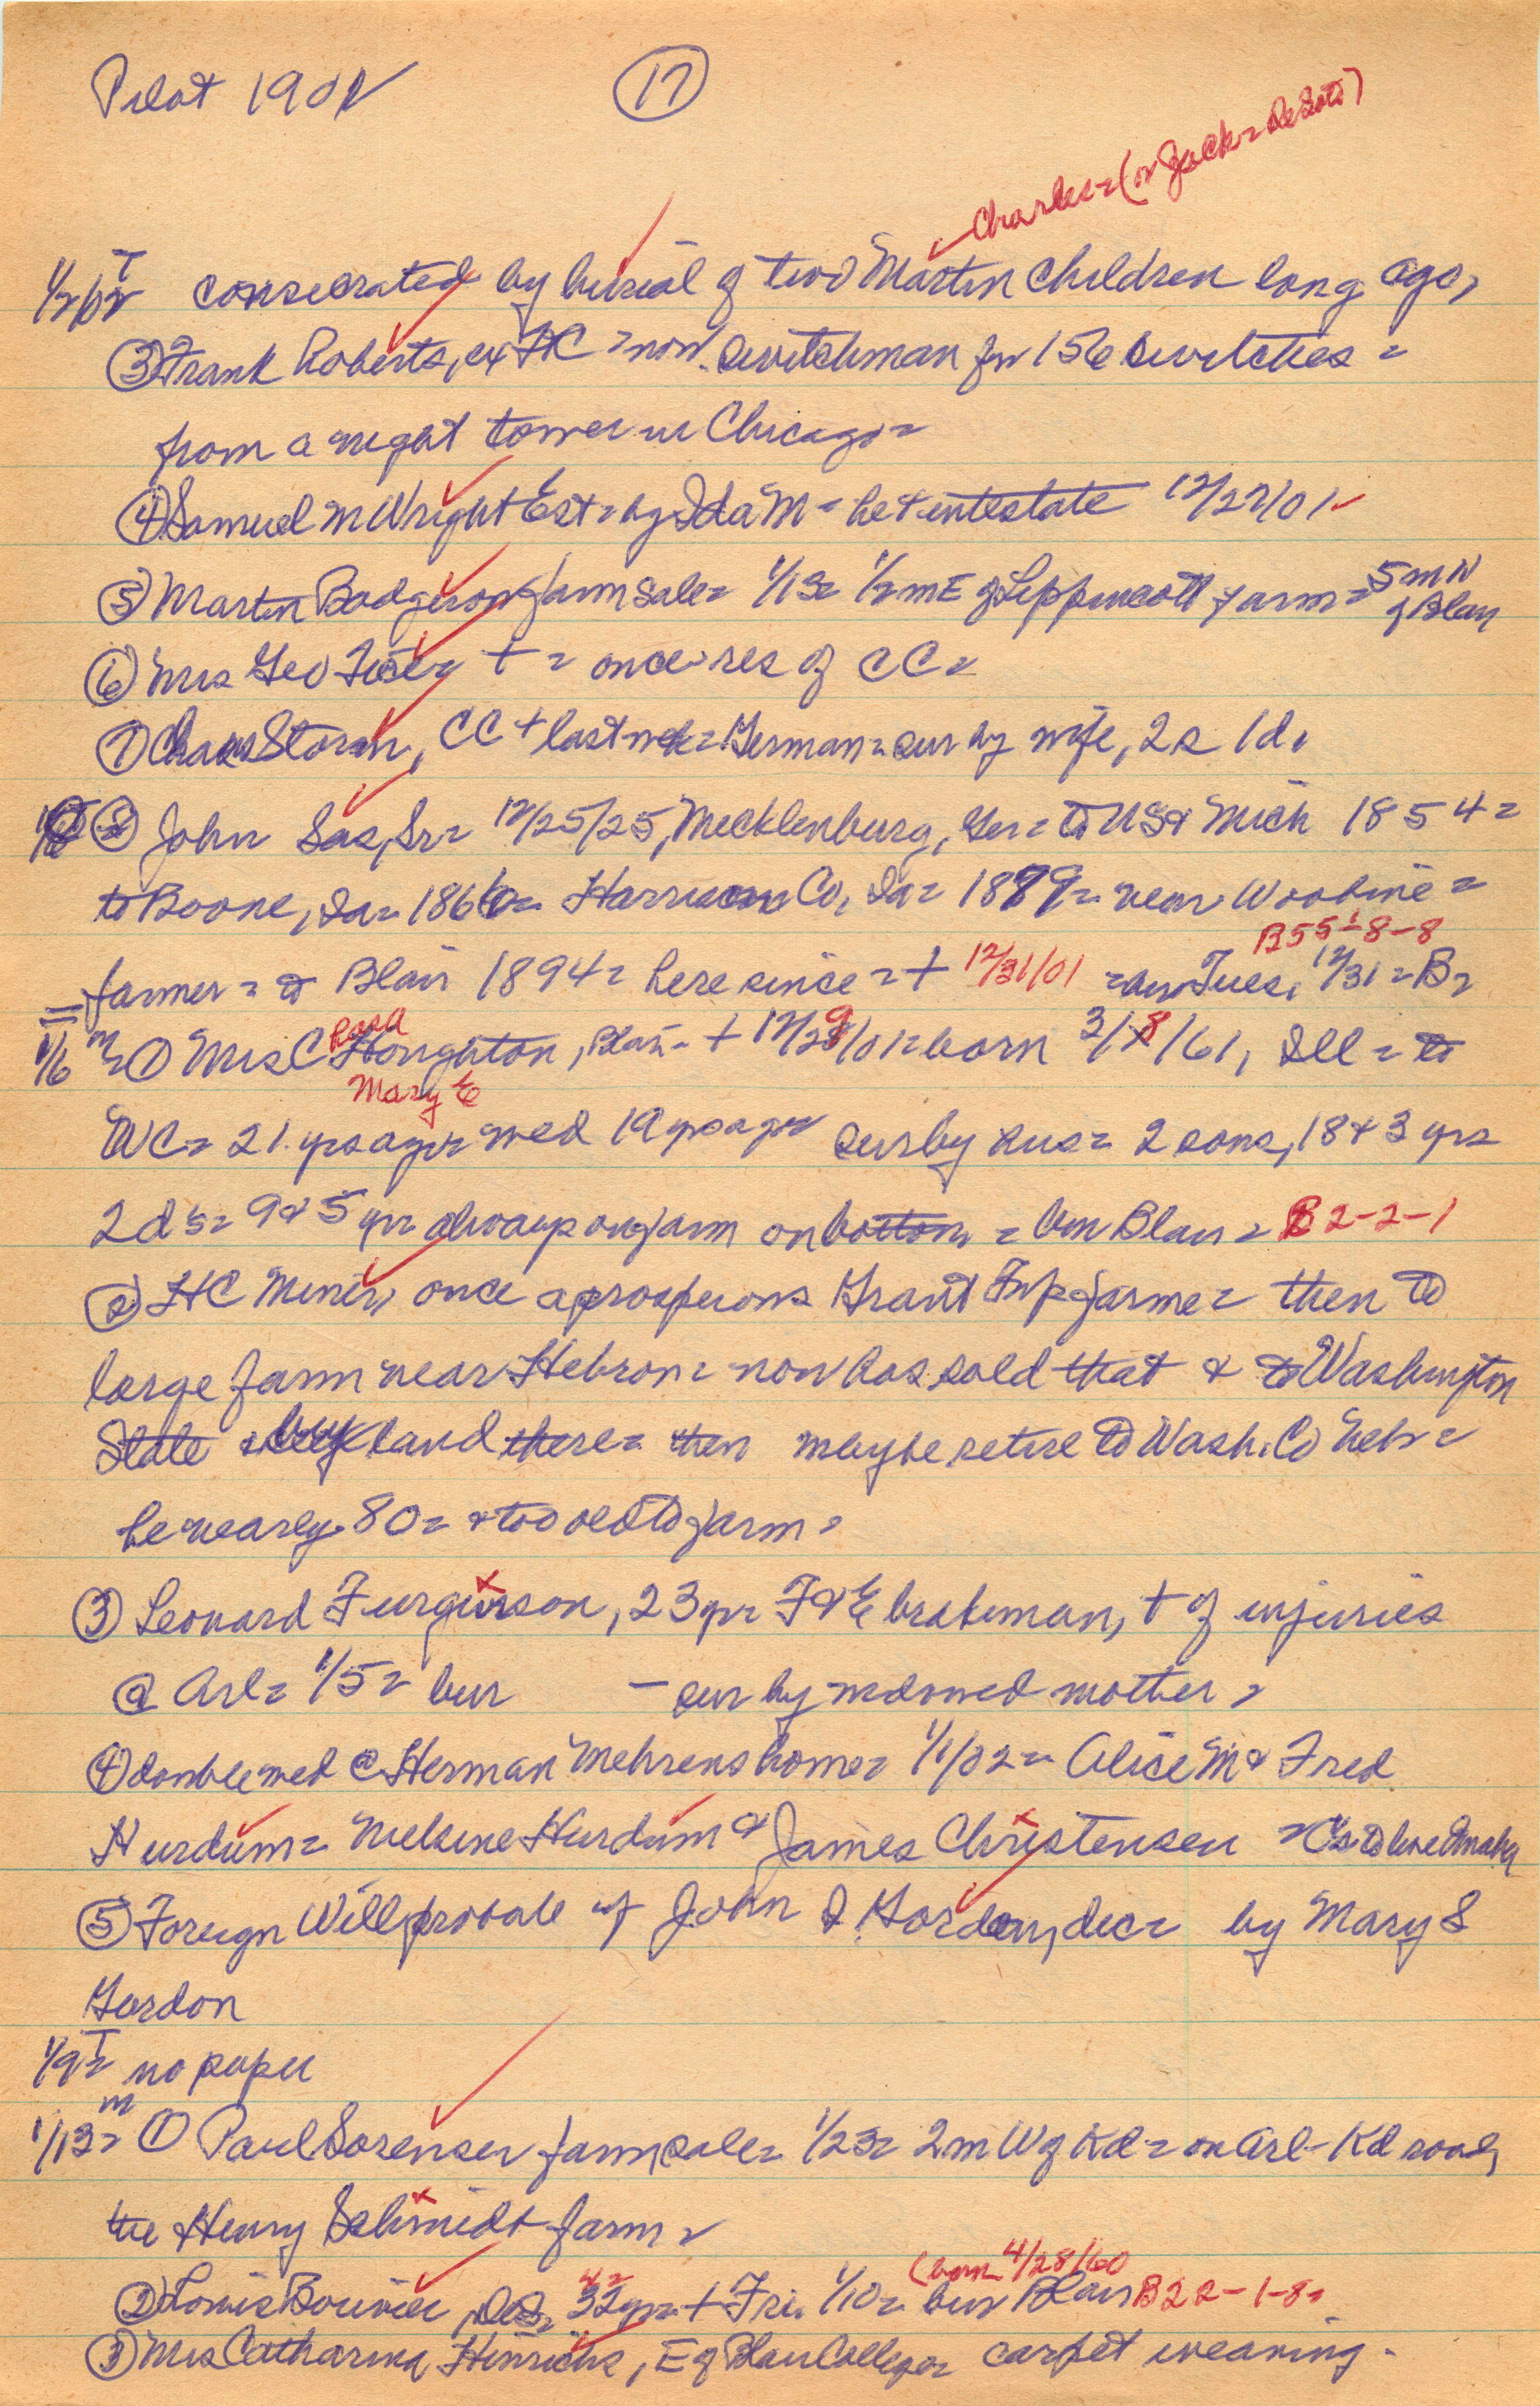 Pilot 1902 17
Charles = (or Jack = DeSoto)
1/2/02 T consecrated by burial of two Martin children long ago,
③ Frank Roberts, ex HC = now switchman for 156 switches =
from a night tower in Chicago =
④ Samuel M Wright Est = by Ida M = he + intestate 12/27/01
⑤ Martin Badgerow farm sale = 1/13 = 1/2 m E of Lippincott farm = 5 m N of Blair
⑥ Mrs Geo + = once res of CC =
⑦ Chas Storm, CC + last wk = German = sur by wife, 2s 1d.
⑧ John Sas, Sr = 12/25/25, Mecklenburg, Ger = to US & Mich 1854 =
to Boone, Ia = 1866 = Harrison Co, Ia = 1879 = near Woodbine =
B55-8-8
farmer = to Blair 1894 = here since = + 12/31/01 = Tues. 12/31 = B =
1/6 M = ① Mrs C Rosa Houghton, Blair - + 12/29/01 = born 3/8/61, Ill = to
Mary E
WC = 21 yrs ago = wed 19 yrs ago sur by hus = 2 sons, 18 & 3 yrs
2 d's = 9 & 5 yr = always on farm on bottom = bur Blair = B2-2-1
② HC Miner, once a prosperous Grant Twp farmer = then to
large farm near Hebron = now has sold that & to Washington
State & buy land there = then maybe retire to Wash. Co Nebr =
he nearly 80 = & too old to farm =
③ Leonard Furgurson, 23 yr = F & E brakeman, + of injuries
@ Arl = 1/5 = bur — sur by widowed mother =
④ double wed @ Herman Mehrens home = 1/1/02 = Alice M & Fred
Hurdum = Nielsine Hurdum & James Christensen = C's to live Omaha
⑤ Foreign Will probate of John I Gordon, dec = by Mary S
Gordon
1/9 T = no paper
1/13 M = ① Paul Sorensen farm sale = 1/23 = 2 m W of Kd = on Arl - Kd road,
the Henry Schmidt farm =
(born 4/28/60
② Louis Bouvier, DeS, 32 yr = 42 + Fri. 1/10 = bur Blair B22-1-8 =
③ Mrs Catharina Hinrichs, E of Blair College = carpet weaving.